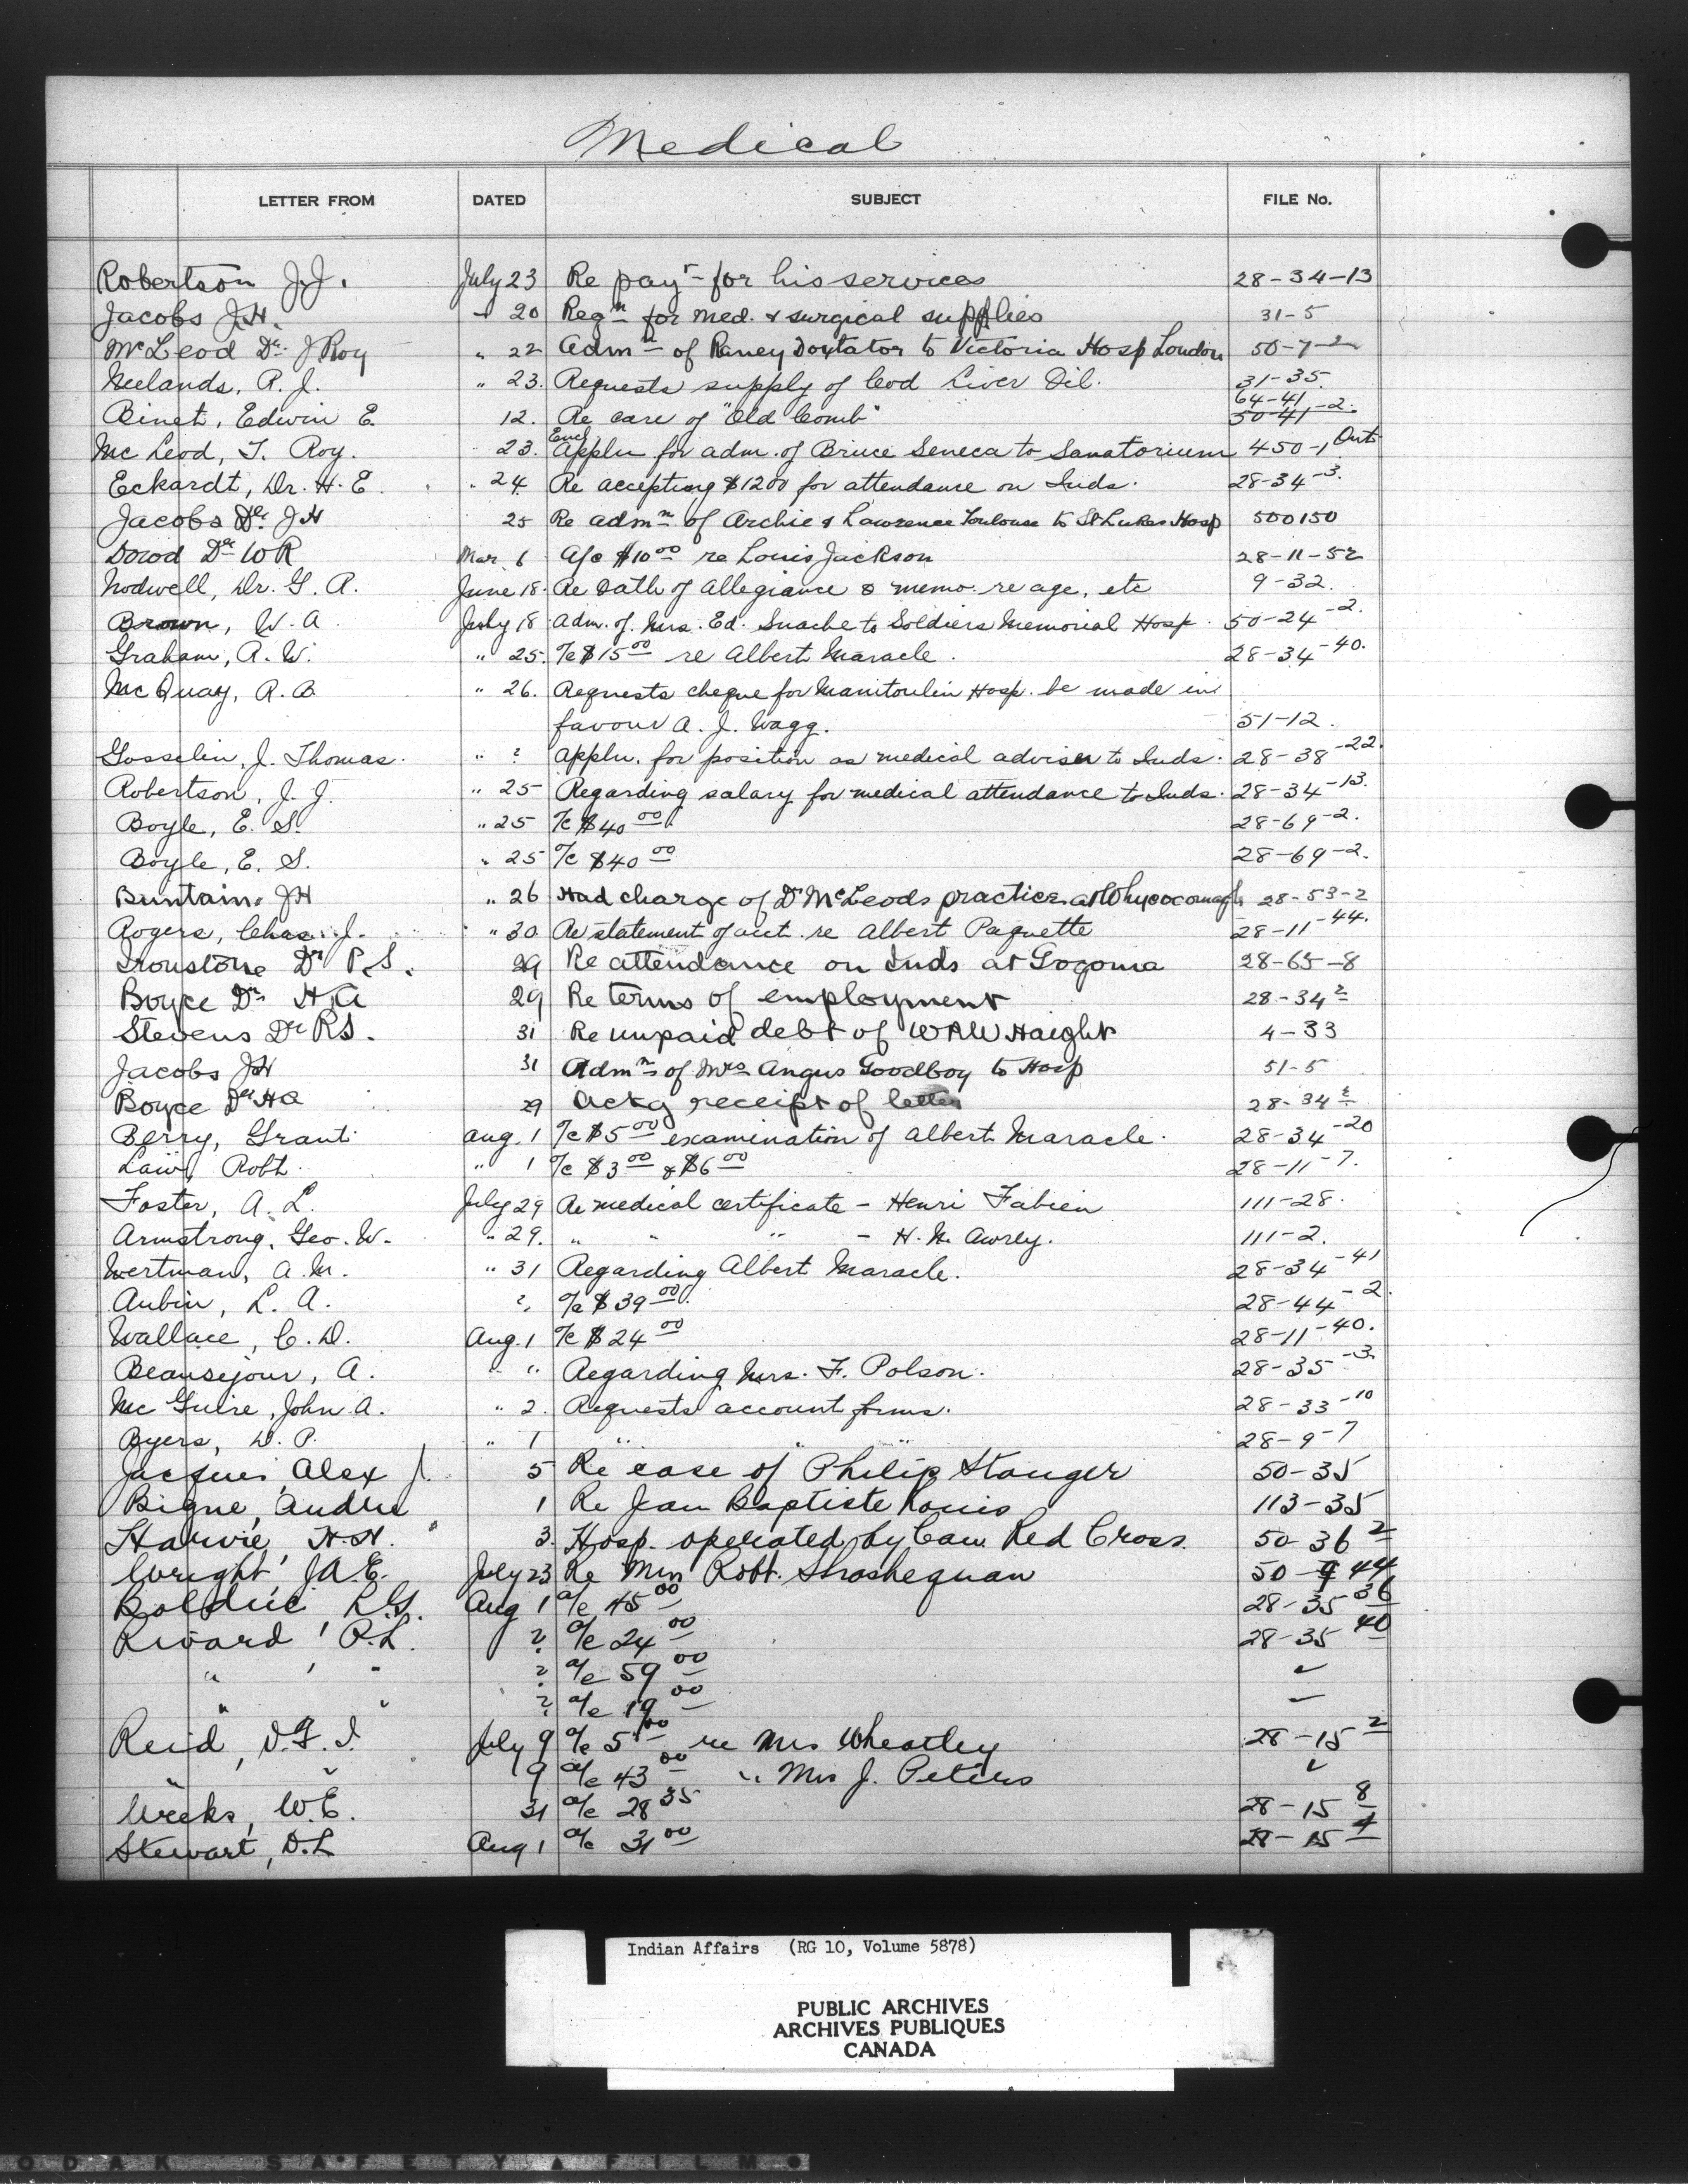 Medical
LETTER FROM DATED SUBJECT FILE No.
Robertson J.J. July 23 Re payt for his services 28-34-13
Jacobs J.H. " 20 Reqn for med. & surgical supplies 31-5
McLeod Dr. J Roy " 22 Admn of Raney Doxtator to Victoria Hosp London 50-7-2
Neelands, R. J. " 23. Requests supply of Cod Liver Oil. 31-35.
Binet, Edwin E. 12. Re care of "Old Comb" 64-41 50-41-2.
McLeod, J. Roy. 23. Encl Appln for adm. of Bruce Seneca to Sanatorium 450-1 Ont
Eckardt, Dr. H. E. " 24. Re accepting $1200 for attendance on Inds. 28-34-3.
Jacobs Dr. J H 25 Re admn of Archie & Lawrence Toulouse to St Lukes Hosp 500150
Dowd Dr W R Mar. 6 A/c $10 00 re Louis Jackson 28-11-52
Nodwell, Dr. G. A. June 18. Re Oath of Allegiance & memo. re age, etc 9-32.
Brown, W. A July 18. Adm. of. Mrs. Ed. Snache to Soldiers Memorial Hosp. 50-24-2.
Graham, R. W. " 25. A/c $15 00 re Albert Maracle. 28-34-40.
McQuay, R. B. " 26. Requests cheque for Manitoulin Hosp. be made in
favour A. J. Wagg. 51-12.
Gosselin, J. Thomas. " ? Appln. for position as medical adviser to Inds. 28-38-22.
Robertson, J. J. " 25 Regarding salary for medical attendance to Inds. 28-34-13.
Boyle, E. S. " 25 A/c $40 00. 28-69-2.
Boyle, E. S. " 25 A/c $40 00 28-69-2.
Buntain, JH " 26 Had charge of Dr McLeods practice at Whycocomagh 28-53-2
Rogers, Chas. J. " 30 Re statement of acct. re Albert Paquette 28-11-44.
Dr P.S. 29 Re attendance on Inds at Gogama 28-65-8
Boyce Dr H A 29 Re terms of employment 28-34 2
Stevens Dr RS. 31 Re unpaid debt of W A W Haight 4-33
Jacobs JH 31 Admn of Mrs Angus Goodboy to Hosp 51-5
Boyce Dr HA 29 Ackg receipt of letter 28-34 2
Berry, Grant. Aug. 1 A/c $5 00 examination of Albert Maracle. 28-34-20
Law, Robt. " 1 A/c $3 00 & $6 00 28-11-7.
Foster, A. L. July 29 Re medical certificate - Henri Fabien 111-28.
Armstrong, Geo. W. " 29. " " " - H. N. Awrey. 111-2.
Wertman, A. M. " 31 Regarding Albert Maracle. 28-34-41
Aubin, L. A. ?, A/c $39 00. 28-44-2.
Wallace, C. D. Aug. 1 A/c $24 00 28-11-40.
Beausejour, A. " " Regarding Mrs. F. Polson. 28-35-3.
McGuire, John A. " 2. Requests account forms. 28-33-10
Byers, D. P. " 1 " " " 28-9-7
Jacques, Alex J. 5 Re case of Philip Stanger 50-35
Bigne, Andre 1 Re Jean Baptiste Louis 113-35
Harvie, H.H. 3. Hosp. operated by Can. Red Cross. 50-36 2
Wright, J.A.E. July 23 Re Mrs Robt. Shoshequan 50-9 44
Bolduc L.G. Aug 1 a/c 45 00 28-35 36
Rivard, R.L. ? a/c 24 00 28-35 40
" , " ? a/c 59 00 "
" " ? a/c 19 00 "
Reid, D.G.J. July 9 a/c 5 00 re Mrs Wheatley 28-15 2
" " 9 a/c 43 00 " Mrs J. Peters "
Weeks, W.E. 31 a/c 28 35 28-15 8
Stewart, D.L Aug 1 a/c 31 00 28-15 4
Indian Affairs (RG 10, Volume 5878)
PUBLIC ARCHIVES
ARCHIVES PUBLIQUES
CANADA
ODAK SAFETY FILM